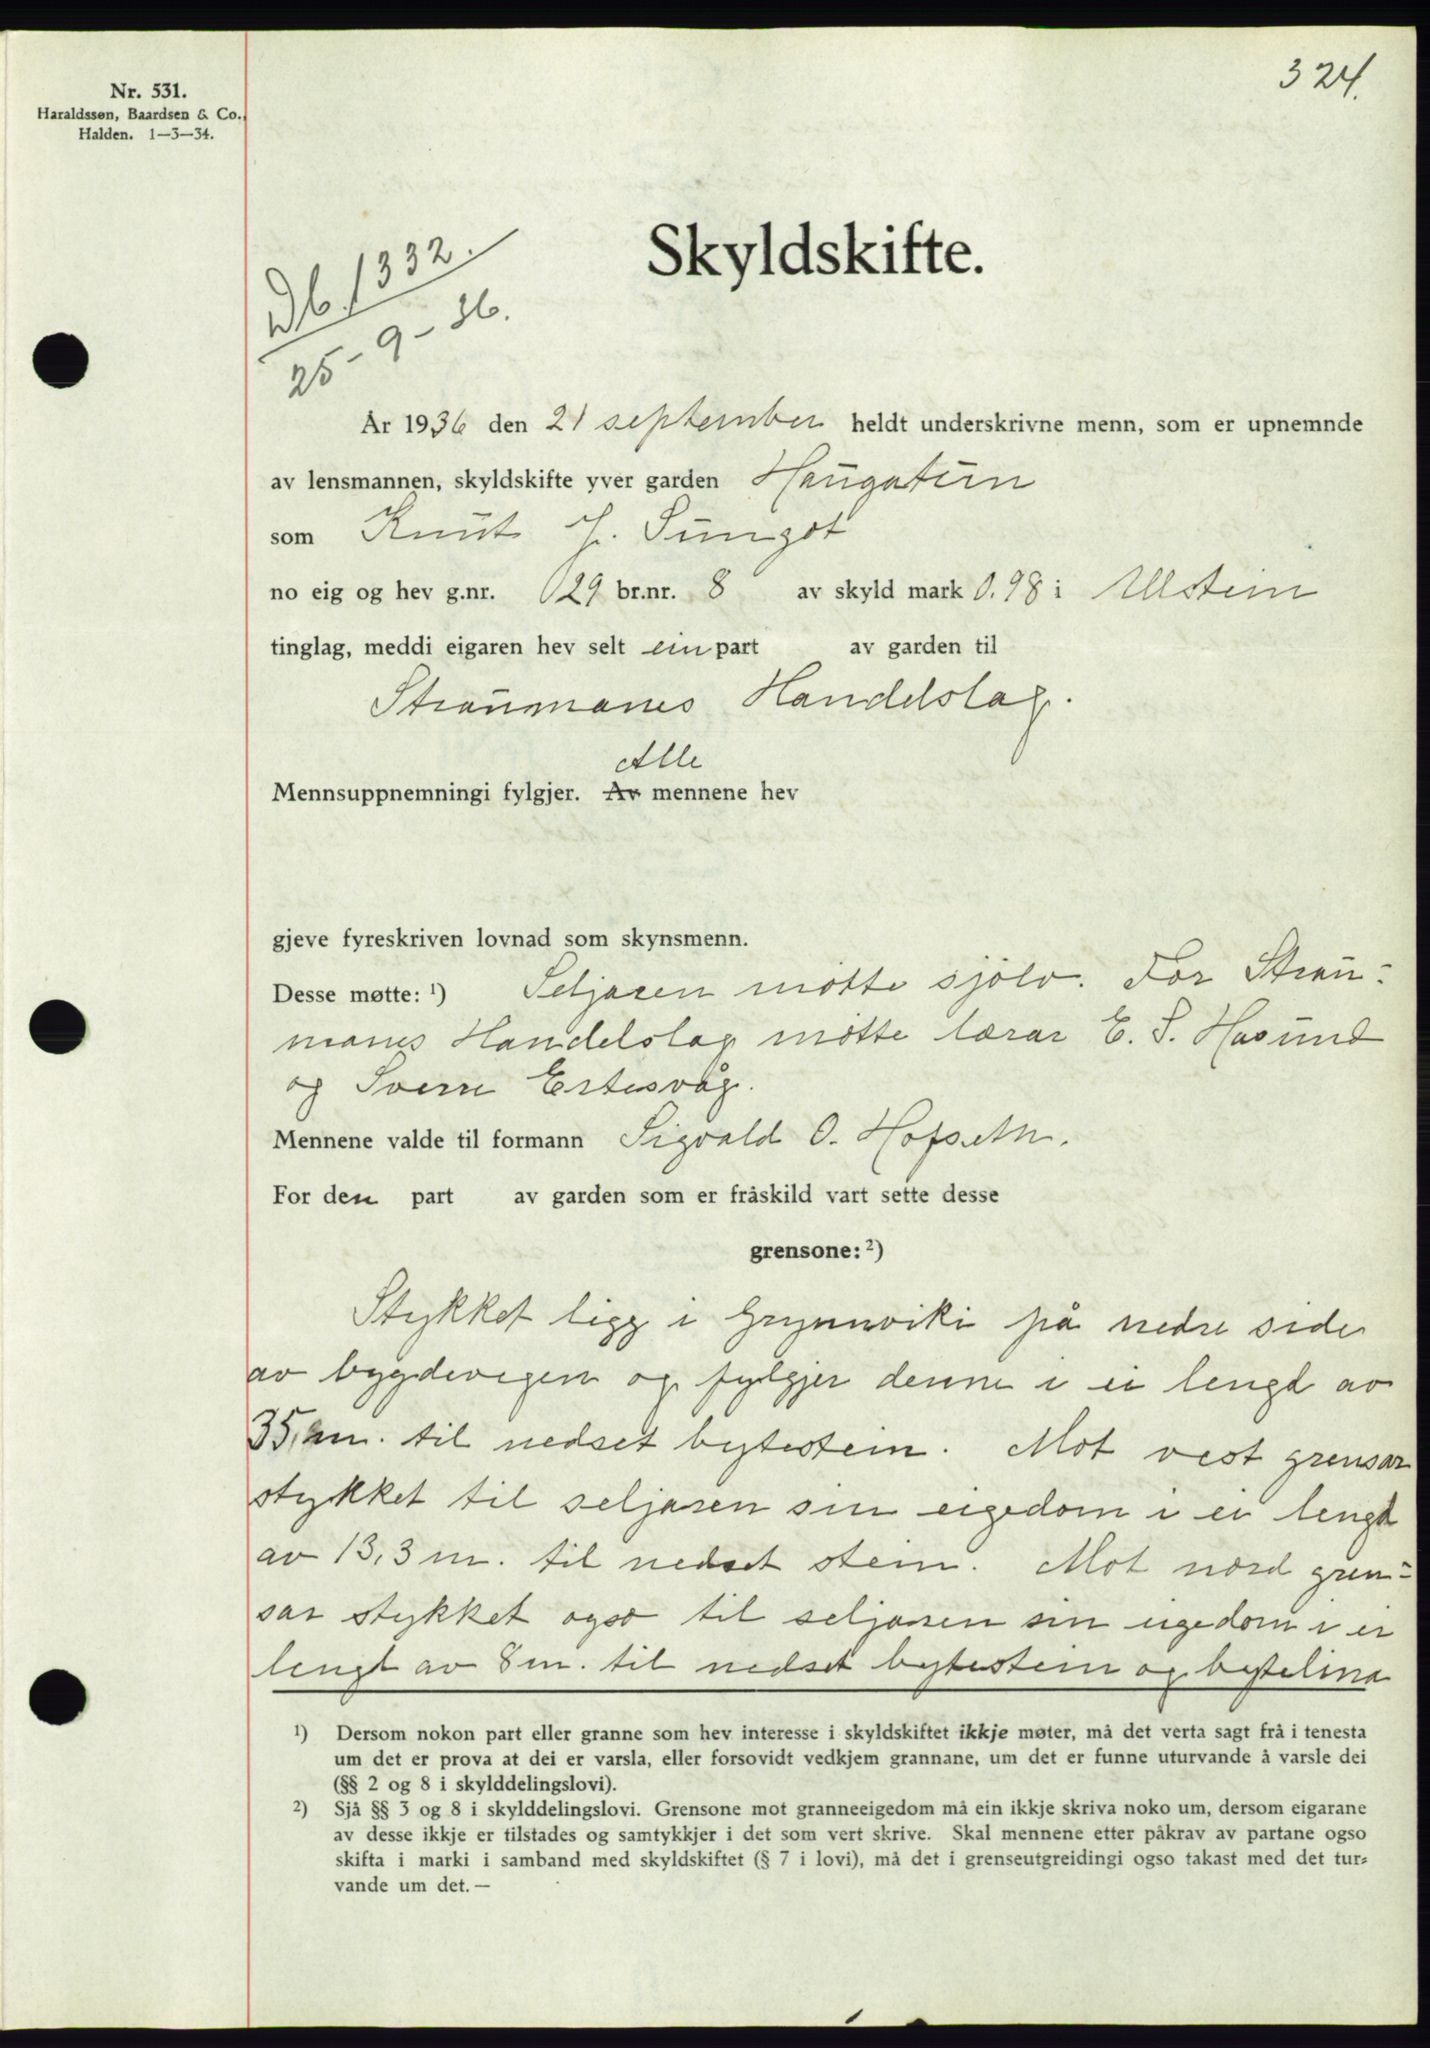 324.
Nr. 531.
Haraldssøn, Baardsen & Co.,
Halden. 1—3—34.
Skyldskifte.
Db. 1332.
25-9-36.
År 1936 den 21 september heldt underskrivne menn, som er upnemnde
av lensmannen, skyldskifte yver garden Haugatun
som Knut J. Sungot
no eig og hev g.nr. 29 br.nr. 8 av skyld mark 0.98 i Ulstein
tinglag, meddi eigaren hev selt ein part av garden til
Straumanes Handelslag.
Alle
Mennsuppnemningi fylgjer. Av mennene hev
gjeve fyreskriven lovnad som skynsmenn.
Desse møtte: ¹) Seljaren møtte sjølv. For Strau-
manes Handelslag møtte lærar E. S. Hasund
og Sverre Ertesvåg.
Mennene valde til formann Sigvald O. Hofseth.
For den part av garden som er fråskild vart sette desse
grensone: ²)
Stykket ligg i Grynnviki på nedre side
av bygdevegen og fylgjer denne i ei lengd av
35 m. til nedset bytestein. Mot vest grensar
stykket til seljaren sin eigedom i ei lengd
av 13,3 m. til nedset stein. Mot nord gren-
sar stykket også til seljaren sin eigedom i ei
lengd av 8 m. til nedset bytestein og bytelina
¹) Dersom nokon part eller granne som hev interesse i skyldskiftet ikkje møter, må det verta sagt frå i tenesta
um det er prova at dei er varsla, eller forsovidt vedkjem grannane, um det er funne uturvande å varsle dei
(§§ 2 og 8 i skylddelingslovi).
²) Sjå §§ 3 og 8 i skylddelingslovi. Grensone mot granneeigedom må ein ikkje skriva noko um, dersom eigarane
av desse ikkje er tilstades og samtykkjer i det som vert skrive. Skal mennene etter påkrav av partane ogso
skifta i marki i samband med skyldskiftet (§ 7 i lovi), må det i grenseutgreidingi ogso takast med det tur-
vande um det. —